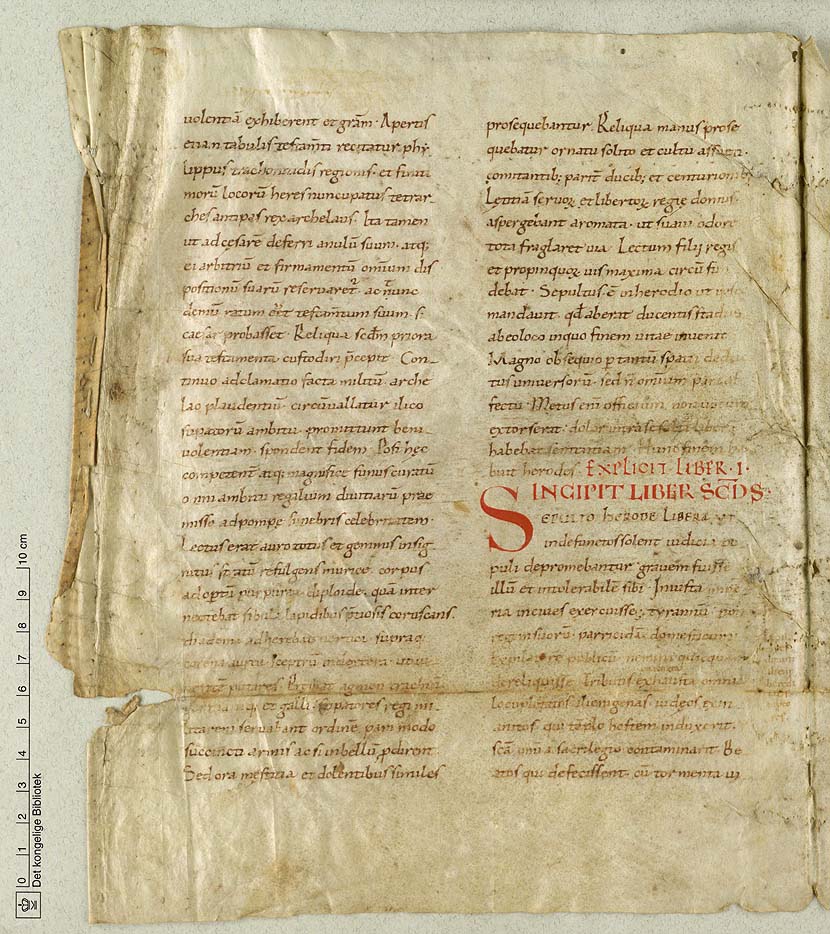 uolentiã exhiberent et grãm · Apertis
etiam tabulis testam̃ti recitatur phy
lippus trachonitidis regionis · et finiti
morũ locorũ heres nuncupatus tetrar
ches antipas rex archelaus · Ita tamen
ut ad cesarẽ deferri anulũ suum · atq;
ei arbitriũ et firmamentũ omniũ dis
positionũ suarũ reseruaret᷑ · ac nunc
demũ ratum testam̃tum suum · s;
caesar probasset · Reliqua scdm̃ priora
sua testimenta custodiri p̃cepit · Con
tinuo adclamatio facta militũ · arche
lao plaudentiũ · circũuallatur ilico
stipatorũ ambitu · promittunt beni
uolentiam · spondent fidem · Post hęc
competent atq; magnifice funus curatũ
omni ambitu regalium diuitiarũ prae
misso ad pompę funebris celebritatem ·
Lectus erat auro totus et gemmis insig
nitus · stratũ refulgens murice · corpus
adoptũ purpura · diploide · quã inter
nectebat sibula lapidibus p̃tiosis coruscans ·
diadema adherebat uertici · supraq;
corona aurea sceptrũ in dextera ·
putares · agmen trachiũ
et galli · stipatores regi mi
litares seruabant ordinẽ · pari modo
succincti armis ac si in bellũ p̃dirent
Sed ora męstitia et dolentibus similes
prosequebantur · Reliqua manus prose
quebatur ornatu solito et cultu assueta ·
comitantib; parit̃ ducib; et centurionib;
Lętitiã seruoꝝ et libertoꝝ regię domus ·
aspergebant aromata · ut suaui odore
tota fraglaret uia · Lectum filii regis
et propinquoꝝ uis maxima circũfun
debat · Sepultus · ẽ in herodio ut ipse
mandauit · qđ aberit ducentis stadiis
ab eo loco in quo finem uitae inuenit
Magno obsequio p tantũ spatii deduc
tus uniuersorũ · sed ñ omnium pari af
fectu · Metus eni officium, non uotum
extorserat · dolor
habebat sententiam · Hunc finem ha
buit herodes · EXPLICIT LIBER · I ·
INCIPIT LIBER SCD̃S ·
SEPULTO HERODE LIBERA, ut
in defunctos solent iudicia po
puli depromebantur grauem fuisse
illũ et intolerabilẽ sibi · Iniusta impe
ria in ciues exercuisse · tyrannũ · non
regem suorũ · parricidã domesticorũ ·
Expilatorẽ publicũ nemini quicquam
dereliquisse · Tributis exhausta omnia
locupletatos alienigenas · iudeos exin
anitos · qui tẽplo hostem induxerit ·
scã omnia sacrilegio contaminarit Be
atos qui defecissent · cũ tormenta ui
0 1 2 3 4 5 6 7 8 9 10 cm
Det kongelige Bibliotek